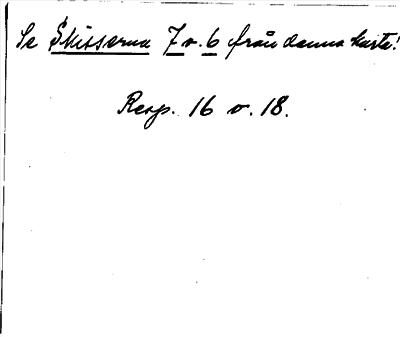 Se Skisserna 7 o. 6 från denna karta!
Resp. 16 o. 18.